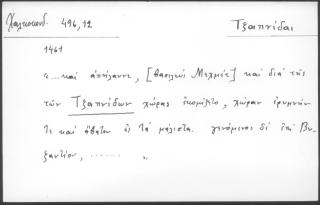 Χαλκοκονδ. 496,12
Τζαπνίδαι
1461
«...καὶ ἀπήλαυνε, [βασιλεὺς Μεχμέτ] καὶ διὰ τῆς
τῶν Τζαπνίδων χώρας ἐκομίζετο, χώραν ἐρυμνήν
τε καὶ ἄβατον ἐς τὰ μάλιστα. γενόμενος δὲ ἐπὶ Βυ-
ζαντίου, ....... »